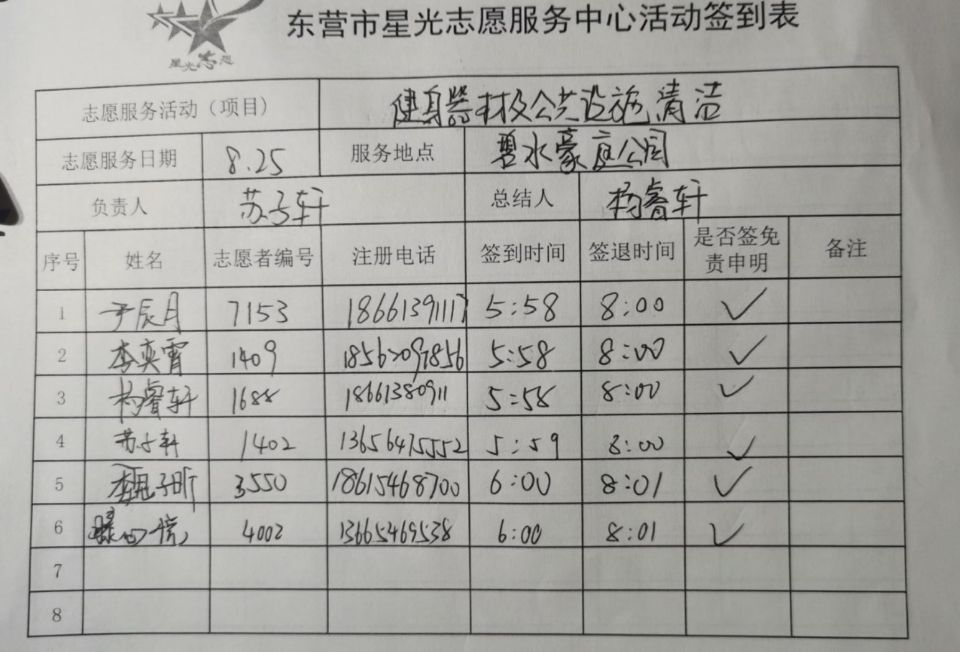 东营市星光志愿服务中心活动签到表
星光志愿
志愿服务活动（项目） 健身器材及公共设施清洁
志愿服务日期 8.25 服务地点 碧水豪庭公园
负责人 苏子轩 总结人 杨睿轩
序号 姓名 志愿者编号 注册电话 签到时间 签退时间 是否签免责申明 备注
1 于辰月 7153 18661391117 5:58 8:00 ✓
2 李奕霄 1409 18562097856 5:58 8:00 ✓
3 杨睿轩 1688 18661380911 5:58 8:00 ✓
4 苏子轩 1402 13656475552 5:59 8:00 ✓
5 3550 18615468700 6:00 8:01 ✓
6 4002 13665469538 6:00 8:01 ✓
7
8